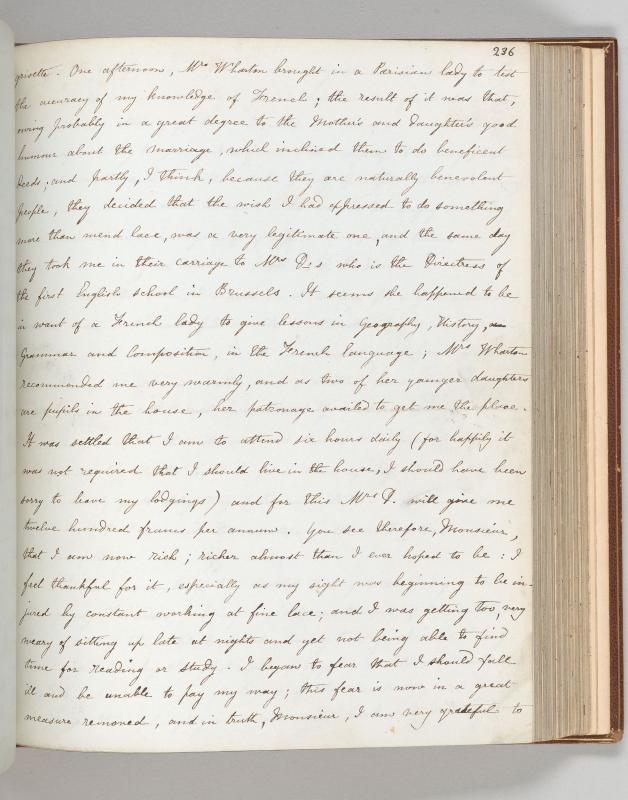 236
grisette. One afternoon, Mrs Wharton brought in a Parisian lady to test
the accuracy of my knowledge of French; the result of it was that,
owing probably in a great degree to the Mother's and daughter's good
humour about the marriage, which inclined them to do beneficent
deeds; and partly, I think, because they are naturally benevolent
people, they decided that the wish I had expressed to do something
more than mend lace, was a very legitimate one, and the same day
they took me in their carriage to Mrs D—s who is the Directress of
the first English school in Brussels. It seems she happened to be
in want of a French lady to give lessons in Geography, History,
Grammar and Composition, in the French language; Mrs Wharton
recommended me very warmly, and as two of her younger daughters
are pupils in the house, her patronage availed to get me the place.
It was settled that I am to attend six hours daily (for happily it
was not required that I should live in the house, I should have been
sorry to leave my lodgings) and for this Mrs D. will give me
twelve hundred francs per annum. You see therefore, Monsieur,
that I am now rich; richer almost than I ever hoped to be: I
feel thankful for it, especially as my sight was beginning to be in-
jured by constant working at fine lace; and I was getting too, very
weary of sitting up late at nights and yet not being able to find
time for reading or study. I began to fear that I should fall
ill and be unable to pay my way; this fear is now in a great
measure removed, and in truth, Monsieur, I am very grateful to